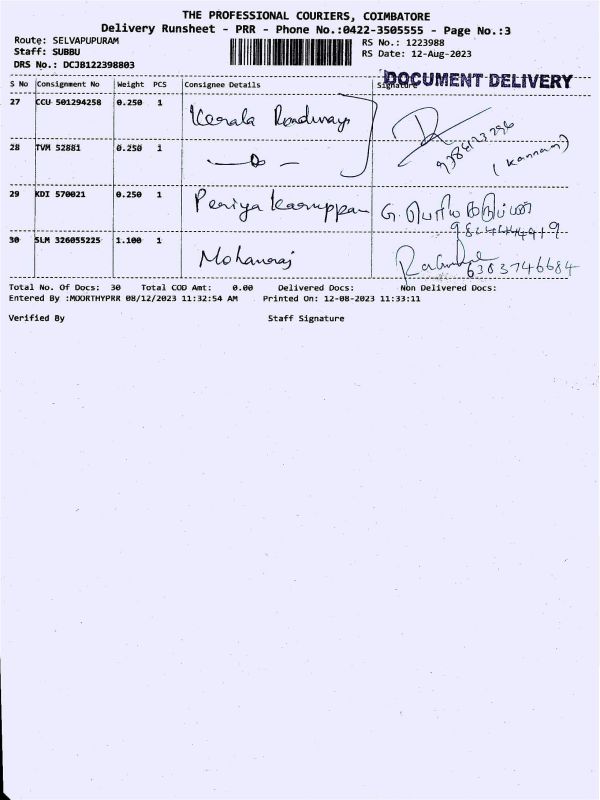 THE PROFESSIONAL COURIERS, COIMBATORE
Delivery Runsheet - PRR - Phone No.:0422-3505555 - Page No.:3
Route: SELVAPUPURAM
RS No.: 1223988
Staff: SUBBU
RS Date: 12-Aug-2023
DRS No.: DCJB122398803
DOCUMENT DELIVERY
S No Consignment No Weight PCS Consignee Details Signature
27 CCU 501294258 0.250 1 Kerala Roadways
28 TVM 52881 0.250 1 (Kannan)
29 KDI 570021 0.250 1 Periya Karuppan G. பெரியகருப்பன்
30 SLM 326055225 1.100 1 Mohanraj
6383746684
Total No. Of Docs: 30 Total COD Amt: 0.00 Delivered Docs: Non Delivered Docs:
Entered By :MOORTHYPRR 08/12/2023 11:32:54 AM Printed On: 12-08-2023 11:33:11
Verified By Staff Signature